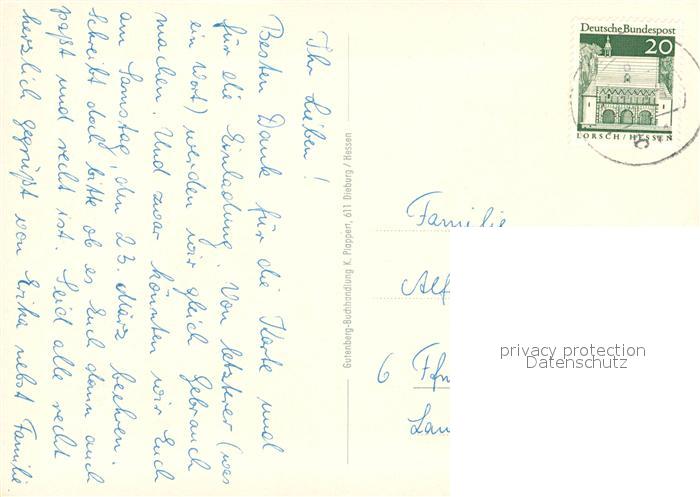 Ihr Lieben!
Besten Dank für die Karte und
für die Einladung. Von letzterer (was
ein Wort) werden wir gleich Gebrauch
machen. Und zwar könnten wir Euch
am Samstag, den 23. März beehren.
Schreibt doch bitte ob es Euch dann auch
paßt und recht ist. Seid alle recht
herzlich gegrüßt von Erika nebst Familie
Gutenberg-Buchhandlung K. Plappert, 611 Dieburg / Hessen
Deutsche Bundespost
20
LORSCH / HESSEN
Familie
Alf
6
privacy protection
Datenschutz